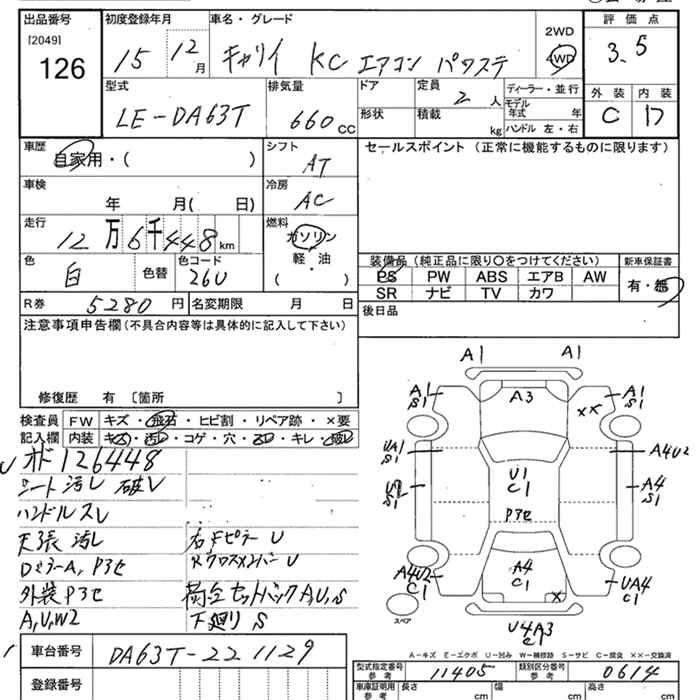 出品番号 [2049] 126
初度登録年月 15 12月
車名・グレード キャリイ KC エアコン パワステ
2WD 4WD
評価点 3.5
外装 C 内装 D
型式 LE-DA63T
排気量 660cc
ドア 形状
定員 2人
積載 kg
ディーラー・並行
モデル年式 年
ハンドル 左・右
車歴 自家用・( )
シフト AT
セールスポイント(正常に機能するものに限ります)
車検 年 月( 日)
冷房 AC
走行 12万6千448km
燃料 ガソリン・軽・油 ( )
色 白 色替
色コード 26U
装備品(純正品に限り○をつけてください)
PS PW ABS エアB AW
SR ナビ TV カワ
新車保証書 有・無
R券 5280円
名変期限 月 日
後日品
注意事項申告欄(不具合内容等は具体的に記入して下さい)
修復歴 有〔箇所 〕
検査員記入欄
FW キズ・飛石・ヒビ割・リペア跡・×要
内装 キズ・汚レ・コゲ・穴・スレ・キレ・破レ
オド126448
シート汚レ 破レ
ハンドルスレ
天張汚レ
外装P3セ
A,U,W2
右Fピラー U
Rクロスメンバー U
荷台セットバックA,U,S
下廻り S
A1 A1
A1 S1
A3
A1 S1
××
UA1 S1
A4U2
U1 C1
A4 S1
P3セ
A4U2 C1
A4 C1
×
UA4 C1
スペア
U4A3 C1
A-キズ E-エクボ U-凹み W-補修跡 S-サビ C-腐食 ××-交換済
車台番号 DA63T-221129
登録番号
型式指定番号 参考 11405
類別区分番号 参考 0614
車庫証明用 参考 長さ cm 幅 cm 高さ cm